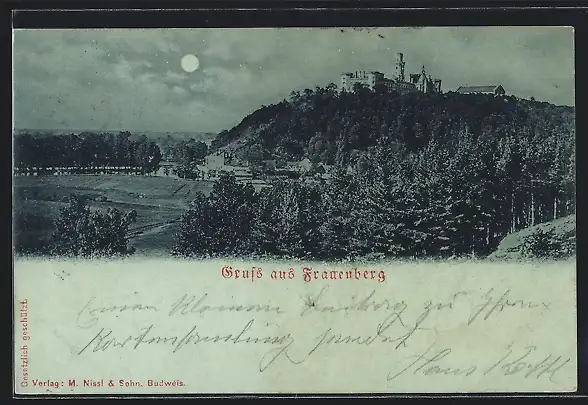 Gruß aus Frauenberg
Einen kleinen Beitrag zu Ihrer
Kartensammlung sendet
Hans
Gesetzlich geschützt.
Verlag: M. Nissl & Sohn. Budweis.